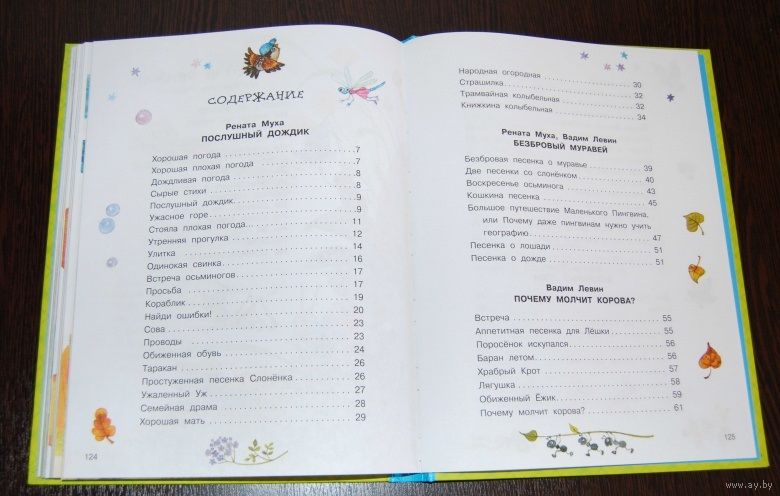 СОДЕРЖАНИЕ
Рената Муха
ПОСЛУШНЫЙ ДОЖДИК
Хорошая погода 7
Хорошая плохая погода 7
Дождливая погода 8
Сырые стихи 8
Послушный дождик 9
Ужасное горе 9
Стояла плохая погода 11
Утренняя прогулка 12
Улитка 14
Одинокая свинка 16
Встреча осьминогов 17
Просьба 17
Кораблик 19
Найди ошибки! 20
Сова 23
Проводы 23
Обиженная обувь 24
Таракан 26
Простуженная песенка Слонёнка 26
Ужаленный Уж 27
Семейная драма 28
Хорошая мать 29
124
Народная огородная 30
Страшилка 32
Трамвайная колыбельная 32
Книжкина колыбельная 34
Рената Муха, Вадим Левин
БЕЗБРОВЫЙ МУРАВЕЙ
Безбровая песенка о муравье 39
Две песенки со слонёнком 40
Воскресенье осьминога 43
Кошкина песенка 45
Большое путешествие Маленького Пингвина,
или Почему даже пингвинам нужно учить
географию 47
Песенка о лошади 51
Песенка о дожде 51
Вадим Левин
ПОЧЕМУ МОЛЧИТ КОРОВА?
Встреча 55
Аппетитная песенка для Лёшки 55
Поросёнок искупался 56
Баран летом 56
Храбрый Крот 57
Лягушка 58
Обиженный Ёжик 59
Почему молчит корова? 61
125
www.ay.by